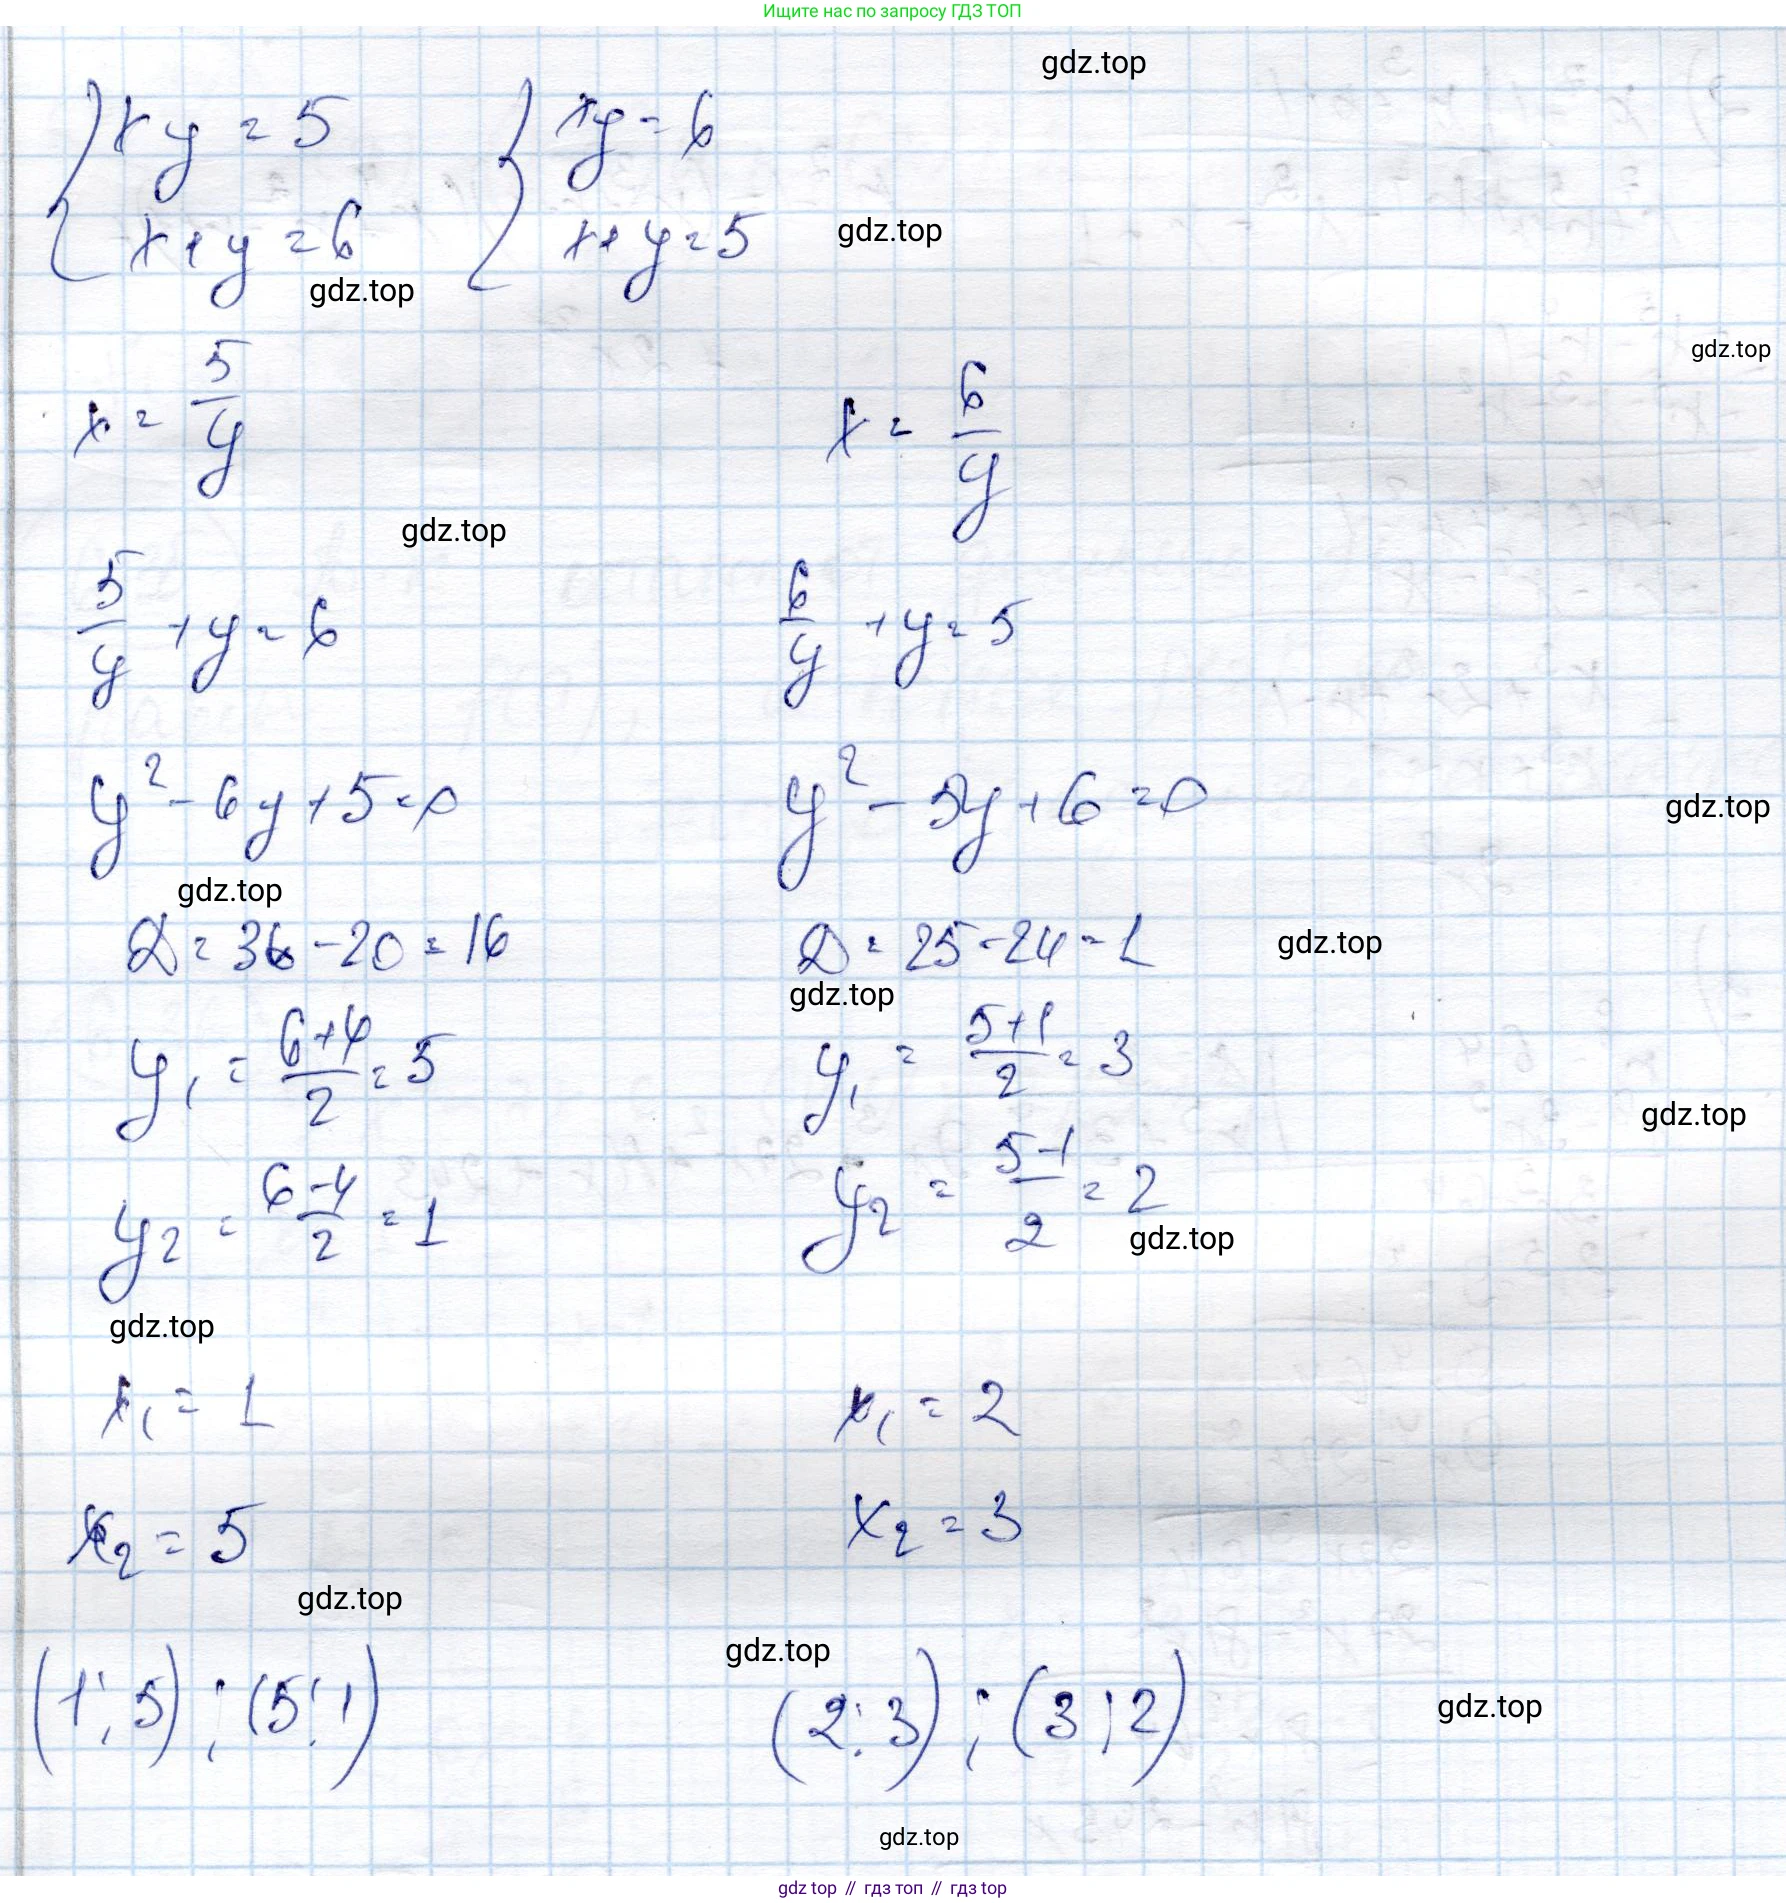 Ищите нас по запросу ГДЗ ТОП
gdz.top
{ xy = 5   { xy = 6
x + y = 6   x + y = 5
gdz.top
gdz.top
gdz.top
x = 5/y   x = 6/y
gdz.top
5/y + y = 6   6/y + y = 5
y² - 6y + 5 = 0   y² - 5y + 6 = 0
gdz.top
gdz.top
D = 36 - 20 = 16   D = 25 - 24 = 1
gdz.top
gdz.top
y₁ = (6+4)/2 = 5   y₁ = (5+1)/2 = 3
gdz.top
y₂ = (6-4)/2 = 1   y₂ = (5-1)/2 = 2
gdz.top
gdz.top
x₁ = 1   x₁ = 2
x₂ = 5   x₂ = 3
gdz.top
gdz.top
(1; 5) ; (5; 1)   (2; 3) ; (3; 2)
gdz.top
gdz.top
gdz top // гдз топ // гдз top